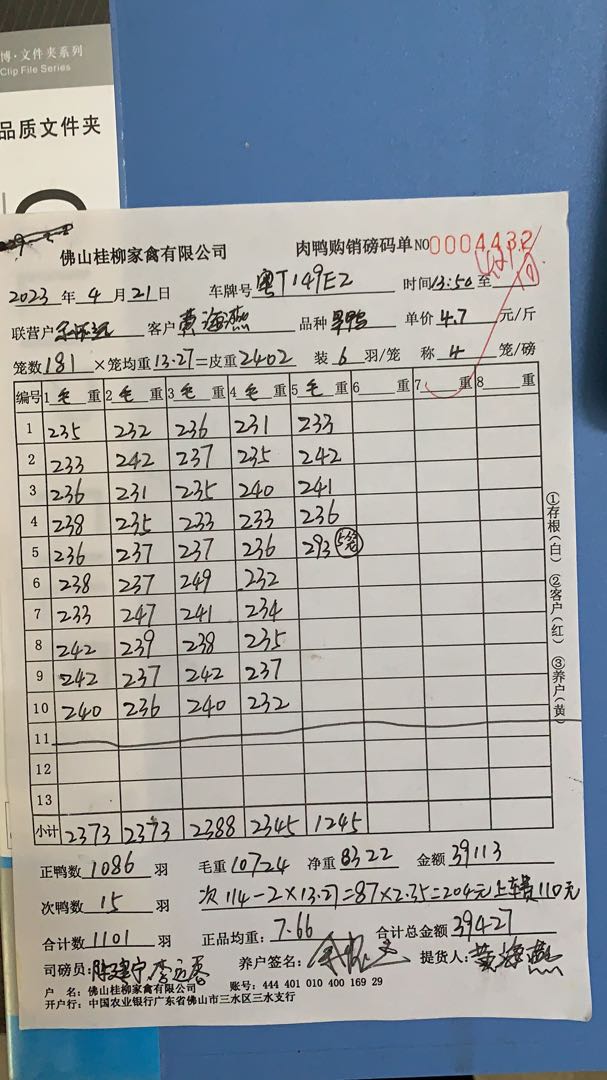 博·文件夹系列
Clip File Series
品质文件夹
佛山桂柳家禽有限公司 肉鸭购销磅码单 NO 0004432
2023 年 4 月 21 日 车牌号 粤T149E2 时间 13:50 至
联营户 客户 黄海燕 品种 单价 4.7 元/斤
笼数 181 ×笼均重 13.27 =皮重 2402 装 6 羽/笼 称 4 笼/磅
编号 1 毛 重 2 毛 重 3 毛 重 4 毛 重 5 毛 重 6 重 7 重 8 重
1 235 232 236 231 233
2 233 242 237 235 242
3 236 231 235 240 241
4 238 235 233 233 236
5 236 237 237 236 293 5笼
6 238 237 249 232
7 233 247 241 234
8 242 239 238 235
9 242 237 242 237
10 240 236 240 232
11
12
13
小计 2373 2373 2388 2345 1245
①存根(白) ②客户(红) ③养户(黄)
正鸭数 1086 羽 毛重 10724 净重 8322 金额 39113
次鸭数 15 羽 次 114-2×13.27=87×2.35=204元 上车费110元
合计数 1101 羽 正品均重: 7.66 合计总金额 39427
司磅员: 陈建宁 养户签名: 提货人: 黄海燕
户 名: 佛山桂柳家禽有限公司 账号: 444 401 010 400 169 29
开户行: 中国农业银行广东省佛山市三水区三水支行